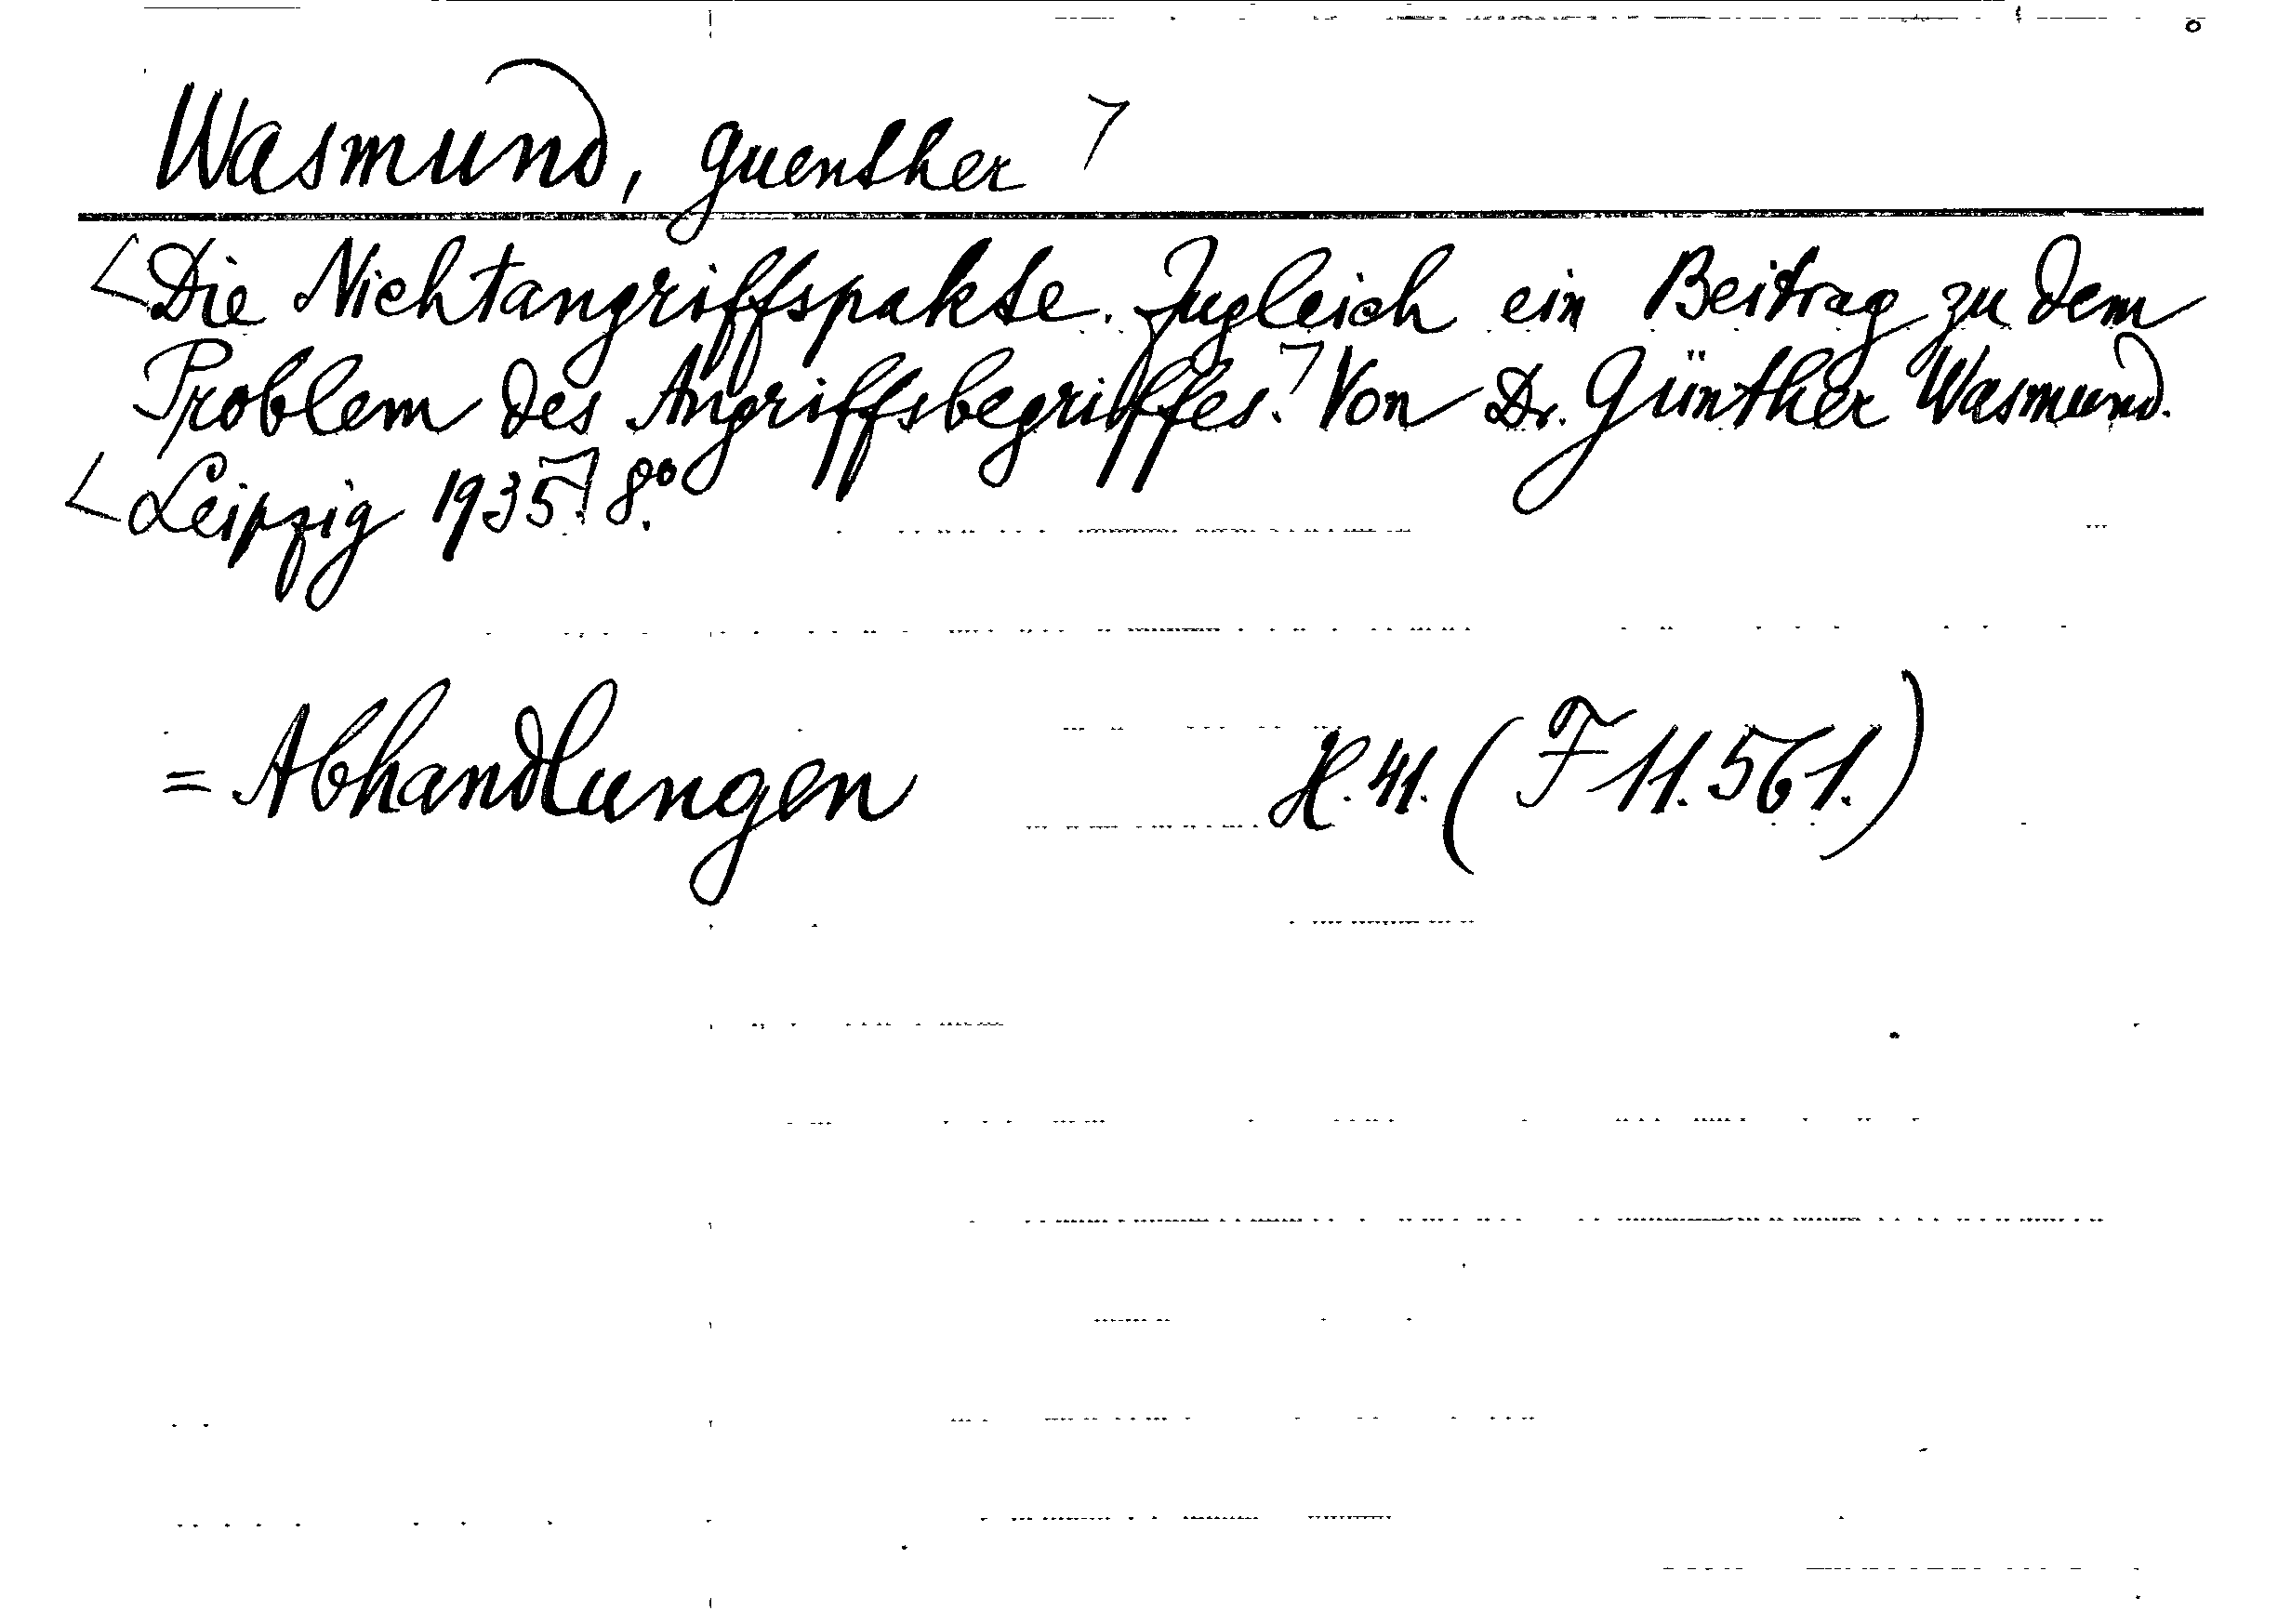 Wasmund, Guenther
Die Nichtangriffspakte. Zugleich ein Beitrag zu dem
Problem des Angriffsbegriffes. Von Dr. Günther Wasmund.
Leipzig 1935. 8°.
= Abhandlungen H. 41. (F 11.561.)